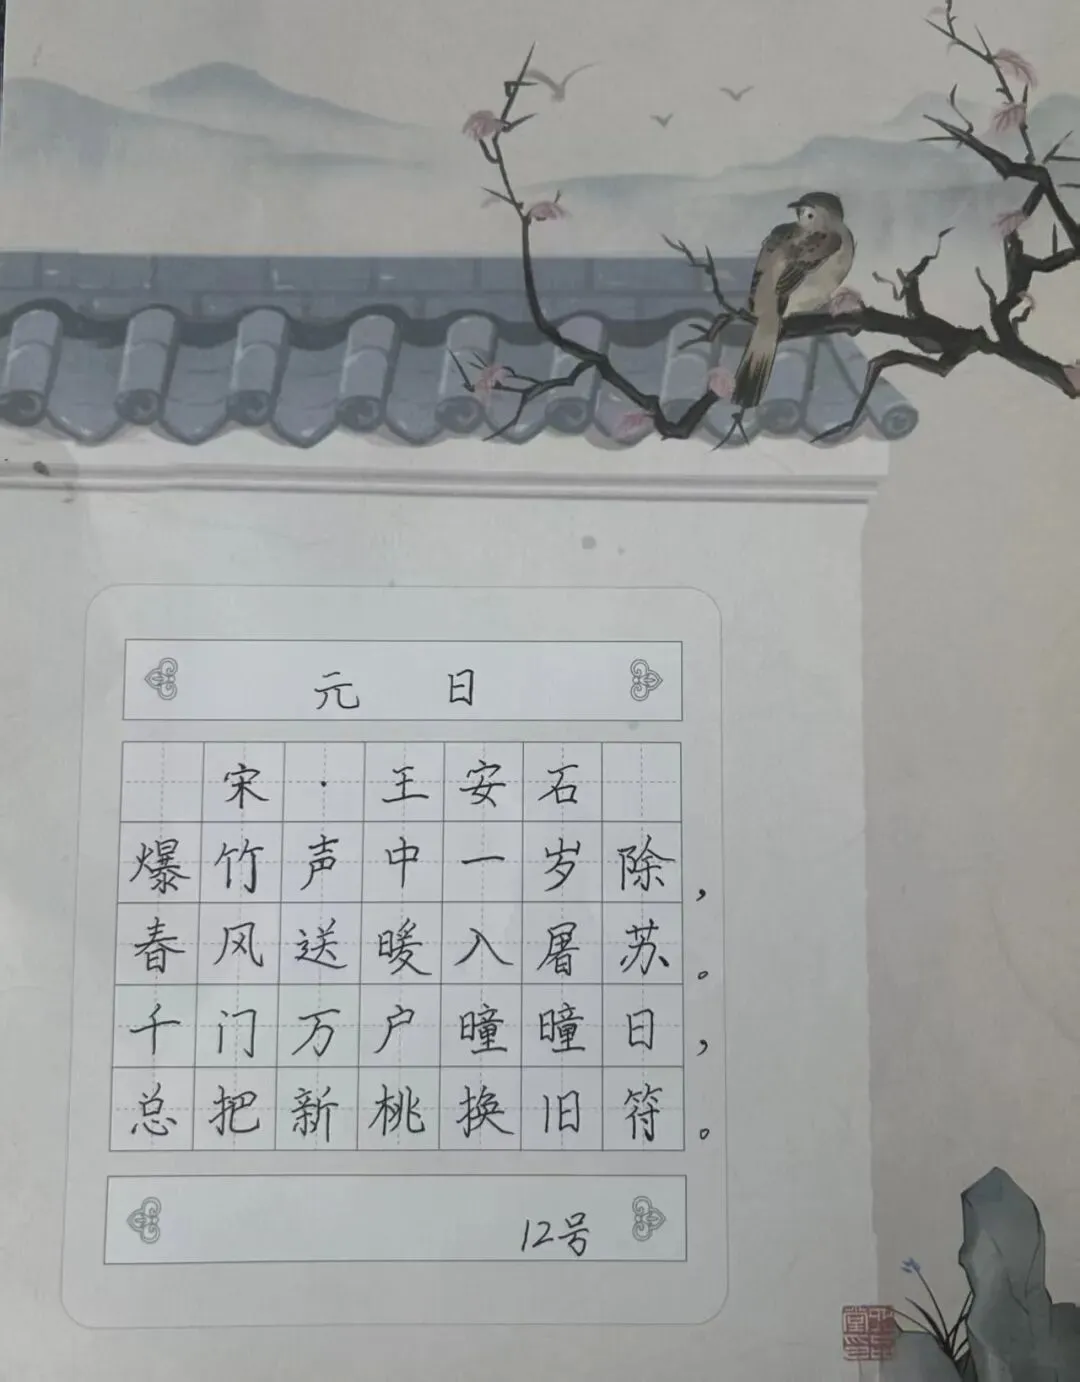 元 日
宋·王安石
爆竹声中一岁除，
春风送暖入屠苏。
千门万户曈曈日，
总把新桃换旧符。
12号